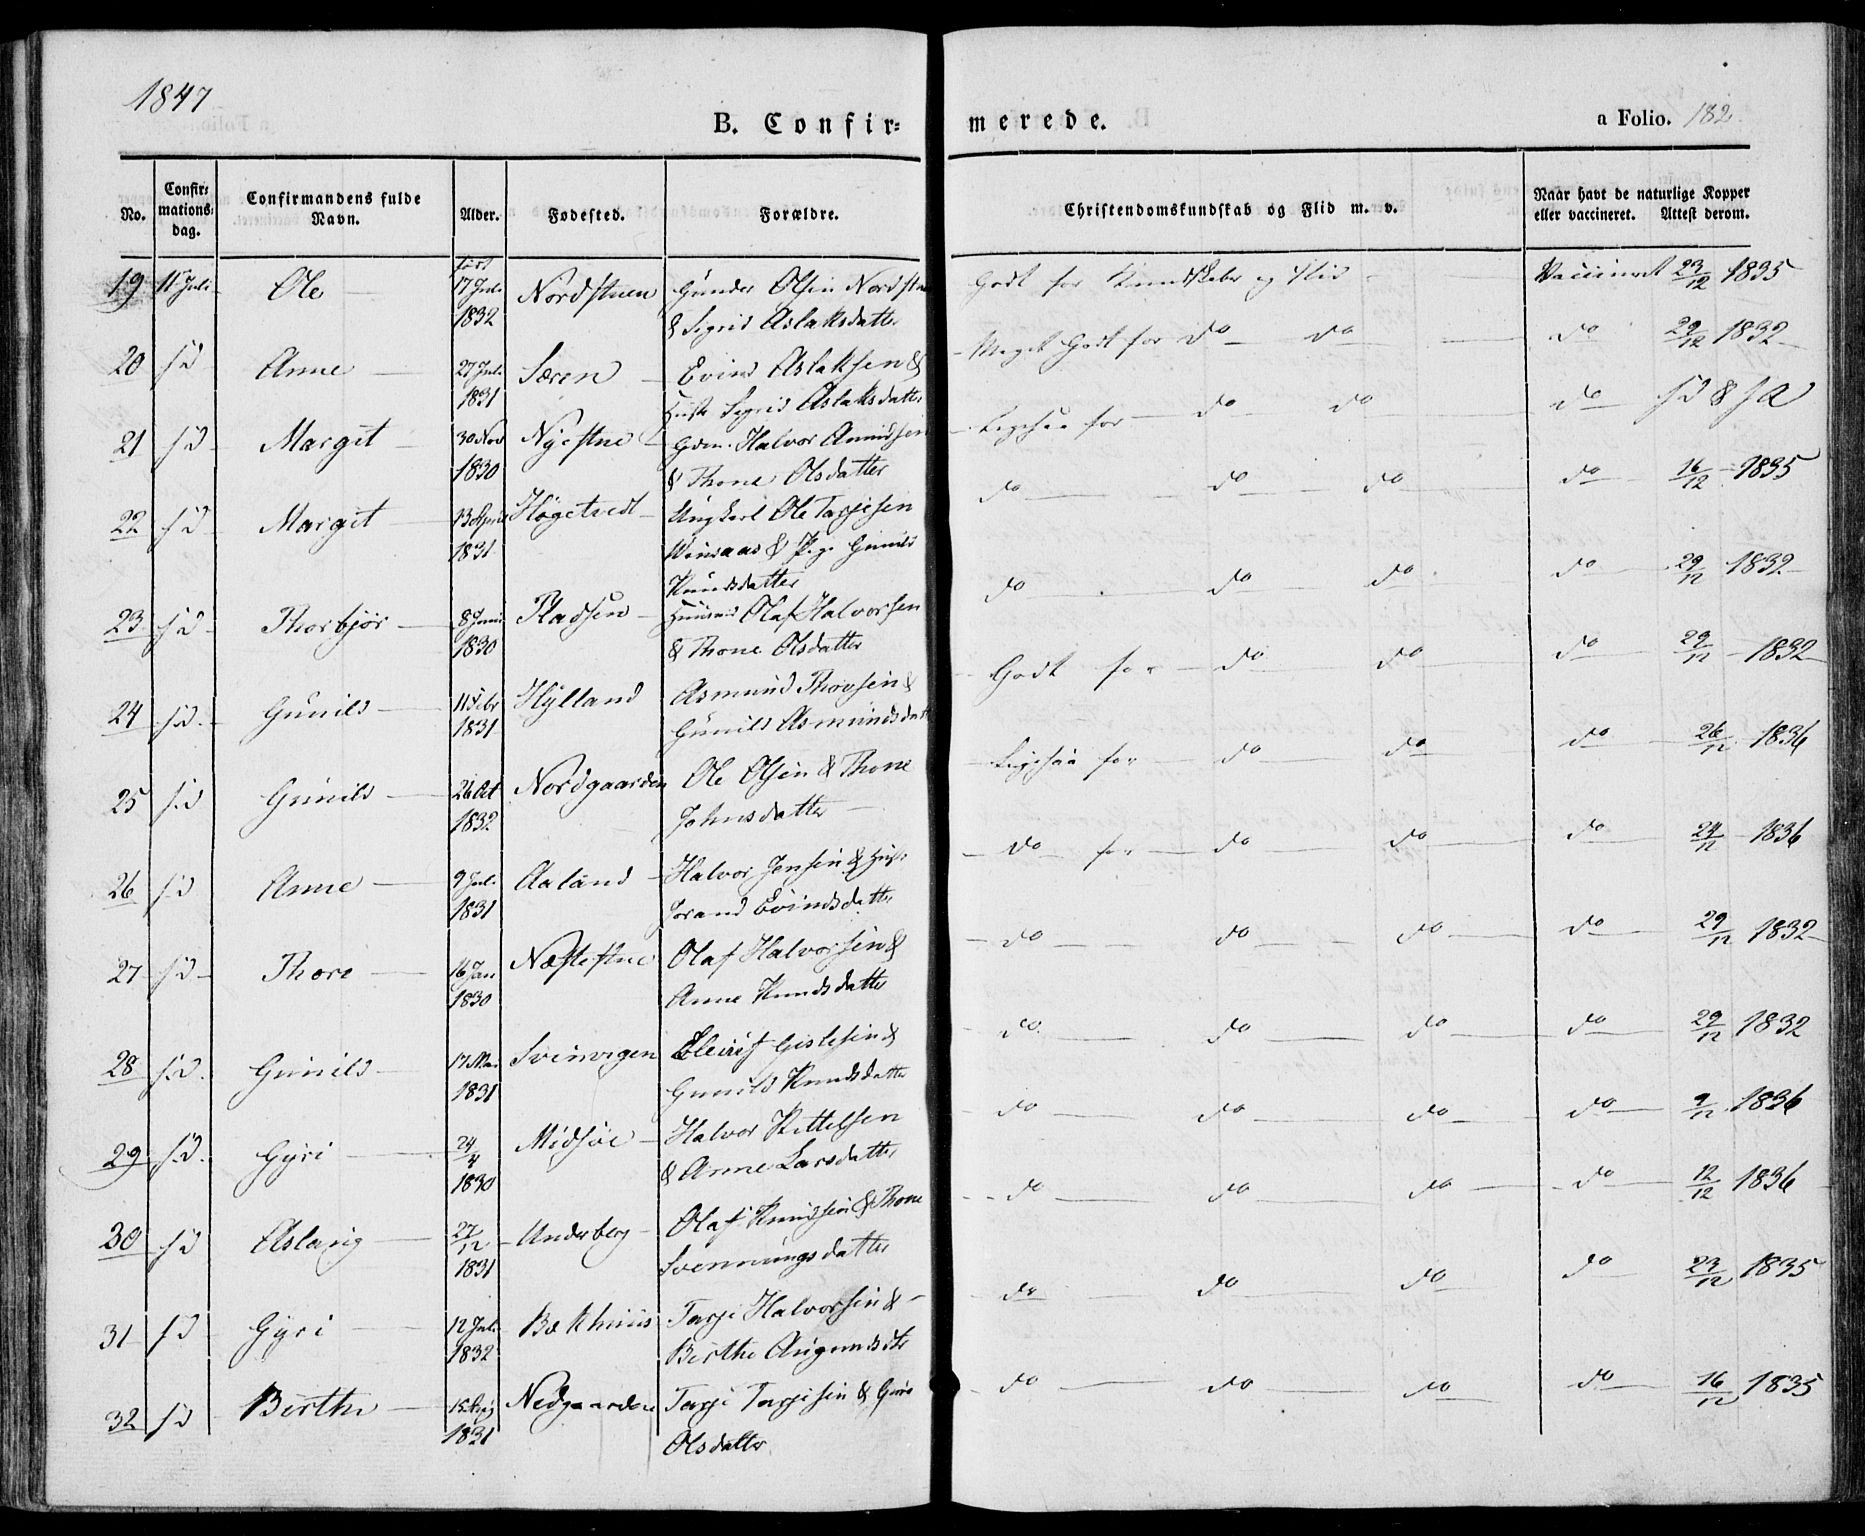 1847
B. Confir= merede.
a Folio. 182.
No. Confir= mations= dag. Confirmandens fulde Navn. Alder. Fødested. Forældre. Christendomskundskab og Flid m. v. Naar havt de naturlige Kopper eller vaccineret. Attest derom.
født
19 11 Juli Ole 17 Jul. Nordstuen Gunder Olsen Godt for Kundskaber og Flid Vaccineret 23/12 1835
1832 & Sigrid Aslaksdatter
20 sd Anne 27 Jul. Søren Evind Aslaksen & Meget Godt for do do do 29/12 1832
1831 Sigrid Aslaksdatter
21 sd Margit 30 Nov Nystue Gdm. Halvor Amundsen Ligesaa for do do do sd & sA
1830 & Thone Olsdatter
22 sd Margit 13 April Høgetvedt Ungkarl Ole Tarjesen do do do do 16/12 1835
1831 & Pige Gunild
Knudsdatter
23 sd Thorbjør 8 Juni Pladsen Huusmd Olaf Halvorsen do do do do 29/12 1832
1830 & Thone Olsdatter
24 sd. Gunild 11 Febr Hylland Asmund Thovsen & Godt for do do do 29/12 1832
1831 Gunild Asmundsdatt
25 sd Gunild 26 Oct Nordgaarden Ole Olsen & Thone Ligesaa for do do do 26/12 1836
1832 Johnsdatter
26 sd Anne 9 Jul. Aaland Halvor Jensen & do for do do do 24/12 1836
1831 Jorand Evindsdatter
27 sd Thore 16 Jan Næstestue Olaf Halvorsen & do do do do 29/12 1832
1830 Anne Knudsdatter
28 sd. Gunild 17 Mai Svinvigen Gislesen & do do do do 29/12 1832
1831 Gunild Knudsdatter
29 sd. Gyri 24/4 Midsøe Halvor Kittelsen do do do do 9/12 1836
1830 & Anne Larsdatter
30 sd Aslaug 27/12 Underberg Olaf Knudsen & Thone do do do do 12/12 1836
1831 Svenningsdatter
31 sd Gyri 12 Jul. Bækhuus Tarje Halvorsen & do do do do 23/12 1835
1832 Berthe
32 sd Berthe 15 Aug Nedgaarden Tarje Tarjesen & Guro do do do do 16/12 1835
1831 Olsdatter